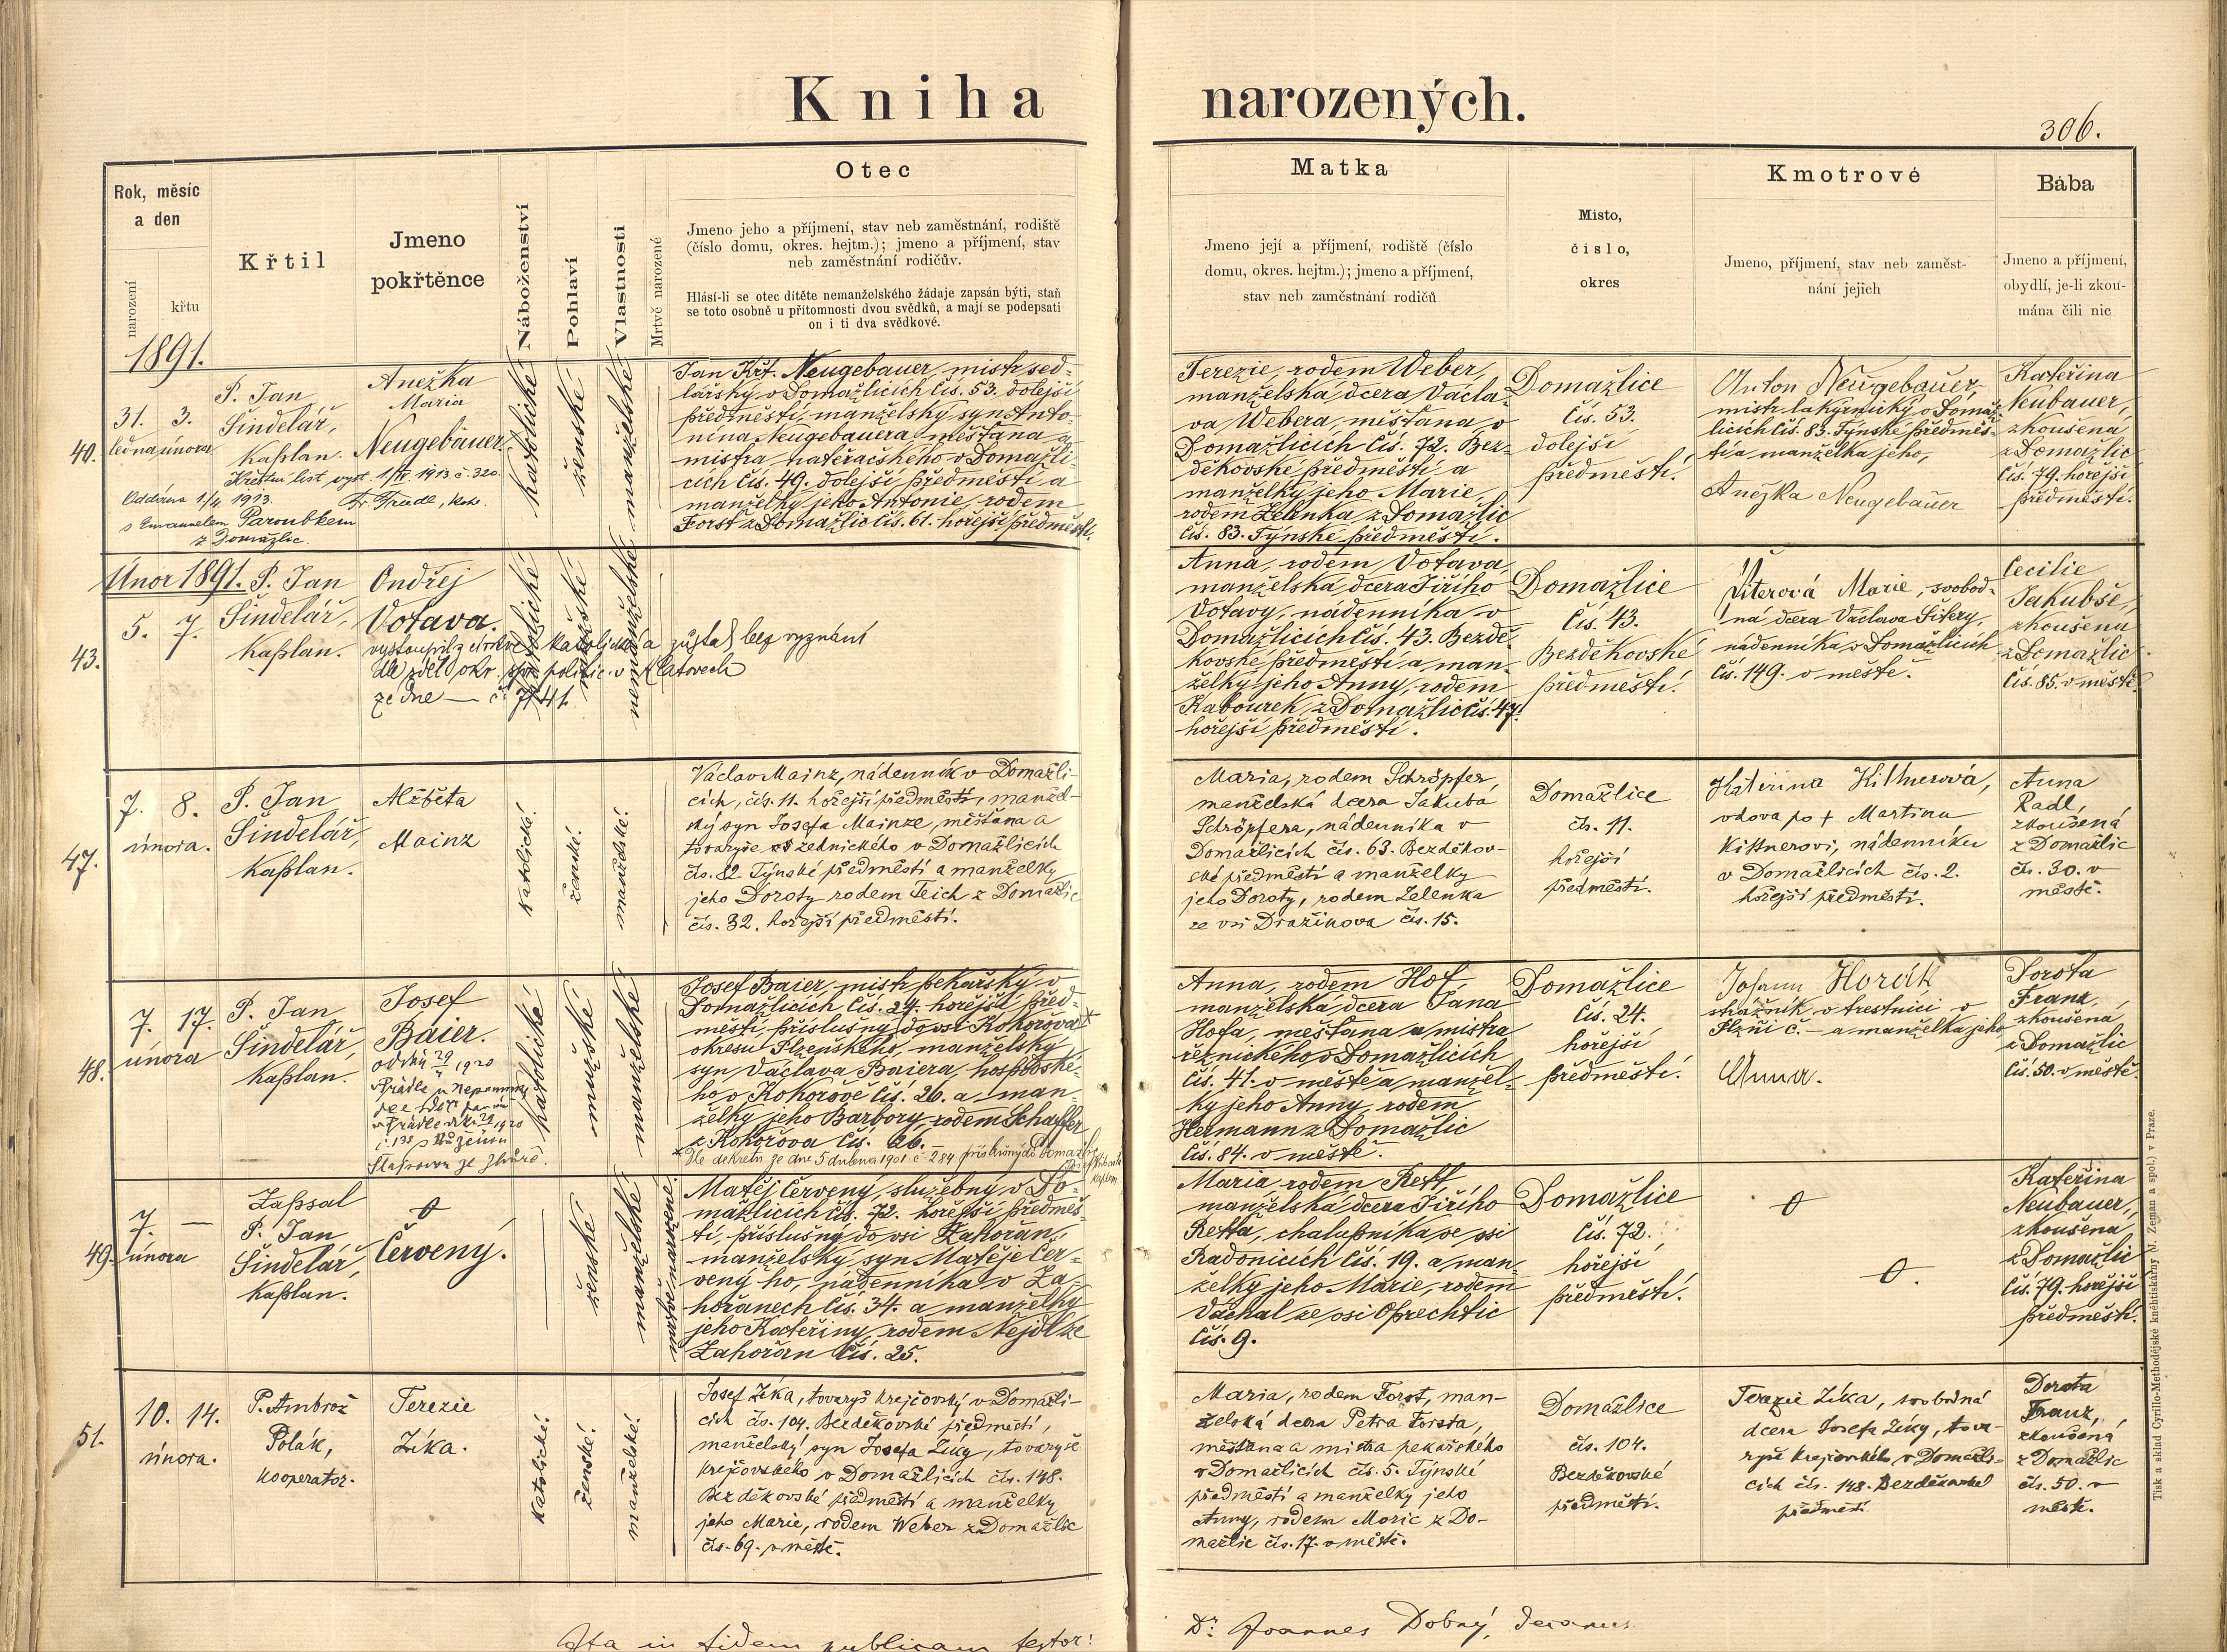 Kniha narozených.
306.
Rok, měsíc
a den
narození
křtu
Křtil
Jmeno
pokřtěnce
Náboženství
Pohlaví
Vlastnosti
Mrtvě narozené
Otec
Jmeno jeho a příjmení, stav neb zaměstnání, rodiště
(číslo domu, okres. hejtm.); jmeno a příjmení, stav
neb zaměstnání rodičův.
Hlásí-li se otec dítěte nemanželského žádaje zapsán býti, staň
se toto osobně u přítomnosti dvou svědků, a mají se podepsati
on i ti dva svědkové.
Matka
Jmeno její a příjmení, rodiště (číslo
domu, okres. hejtm.); jmeno a příjmení,
stav neb zaměstnání rodičů
Místo,
číslo,
okres
Kmotrové
Jmeno, příjmení, stav neb zaměst-
nání jejich
Bába
Jmeno a příjmení,
obydlí, je-li zkou-
mána čili nic
1891.
40.
31. 3.
ledna února
P. Jan
Šindelář,
kaplan.
Anežka
Maria
Neugebauer.
Křestní list vyst. 1/IV 1913 č. 320.
Oddána 1/4 1913.
s Emanuelem Paroubkem
z Domažlic.
katolické
ženské
manželské
Jan Křt. Neugebauer, mistr sed-
lářský v Domažlicích čís. 53. dolejší
předměstí, manželský syn Anto-
nína Neugebauera, měštana a
mistra natěračského v Domažli-
cích čís. 49. dolejší předměstí a
manželky jeho Antonie, rodem
Forst z Domažlic čís. 61. hořejší předměstí.
Terezie, rodem Weber,
manželská dcera Václa-
va Webera, měštana v
Domažlicích čís. 72. Bez-
děkovské předměstí a
manželky jeho Marie,
rodem Zelenka z Domažlic
čís. 83. Týnské předměstí.
Domažlice
čís. 53.
dolejší
předměstí.
Anton Neugebauer,
mistr lakýrnický v Domaž-
licích čís. 83. Týnské předměs-
tí a manželka jeho,
Anežka Neugebauer
Kateřina
Neubauer,
zkoušená
z Domažlic
čís. 79. hořejší
předměstí.
Únor 1891.
43.
5. 7.
P. Jan
Šindelář,
kaplan.
Ondřej
Votava.
vystoupil z církve katolické a zůstal bez vyznání
dle sděl. okr. polic. v Klatovech
ze dne — č. 7141.
katolické
mužské
nemanželské
Anna, rodem Votava,
manželská dcera Jiřího
Votavy, nádenníka v
Domažlicích čís. 43. Bezdě-
kovské předměstí a man-
želky jeho Anny, rodem
Kabourek, z Domažlic čís. 47.
hořejší předměstí.
Domažlice
čís. 43.
Bezděkovské
předměstí.
Šiterová Marie, svobod-
ná dcera Václava Šitery,
nádenníka v Domažlicích
čís. 149. v městě.
Cecilie
Jakubše,
zkoušená
z Domažlic
čís. 85. v městě.
47.
7. 8.
února.
P. Jan
Šindelář,
kaplan.
Alžběta
Mainz
katolické.
ženské.
manželské.
Václav Mainz, nádenník v Domažli-
cích, čís. 11. hořejší předměstí, manžel-
ský syn Josefa Mainze, měštana a
tovaryše zednického v Domažlicích
čís. 82 Týnské předměstí a manželky
jeho Doroty rodem Teich z Domažlic
čís. 32. hořejší předměstí.
Maria, rodem Schröpfer,
manželská dcera Jakuba
Schröpfera, nádenníka v
Domažlicích čís. 63. Bezděkov-
ské předměstí a manželky
jeho Doroty, rodem Zelenka
ze vsi Dražínova čís. 15.
Domažlice
čís. 11.
hořejší
předměstí.
Kateřina Kittnerová,
vdova po † Martinu
Kittnerovi, nádenníku
v Domažlicích čís. 2.
hořejší předměstí.
Anna
Radl,
zkoušená
z Domažlic
čís. 30. v
městě.
48.
7. 17.
února
P. Jan
Šindelář,
kaplan.
Josef
Baier.
katolické
mužské
manželské
Josef Baier, mistr pekařský v
Domažlicích čís. 24. hořejší před-
městí, příslušný do vsi Kokořova
okresu Plzeňského, manželský
syn Václava Baiera, hospodské-
ho v Kokořově čís. 26. a man-
želky jeho Barbory, rodem Schaffer
z Kokořova čís. 26.
Dle dekretu ze dne 5 dubna 1901 č. 284 příslušný do Domažlic
Anna, rodem Hof,
manželská dcera Jana
Hofa, měštana a mistra
řeznického v Domažlicích
čís. 41. v městě a manžel-
ky jeho Anny, rodem
Hermann z Domažlic
čís. 84. v městě.
Domažlice
čís. 24.
hořejší
předměstí.
Johann Horák
strážník v trestnici v
Plzni č. — a manželka jeho
Anna.
Dorota
Franz,
zkoušená
z Domažlic
čís. 50. v městě.
49.
7. —
února
Zapsal
P. Jan
Šindelář,
kaplan.
Červený.
ženské
manželské
mrtvě narozené.
Matěj Červený, služebný v Do-
mažlicích čís. 72. hořejší předměs-
tí, příslušný do vsi Zahořan,
manželský syn Matěje Čer-
veného, nádenníka v Za-
hořanech čís. 34. a manželky
jeho Kateřiny, rodem Nejdl ze
Zahořan čís. 25.
Maria rodem Rett,
manželská dcera Jiřího
Retta, chalupníka ve vsi
Radonicích čís. 19. a man-
želky jeho Marie, rodem
Váchal ze vsi Oprechtic
čís. 9.
Domažlice
čís. 72.
hořejší
předměstí.
Kateřina
Neubauer,
zkoušená
z Domažlic
čís. 79. hořejší
předměstí.
51.
10. 14.
února.
P. Ambrož
Polák,
kooperator.
Terezie
Zíka.
katolické.
ženské.
manželské.
Josef Zíka, tovaryš krejčovský v Domažli-
cích čís. 104. Bezděkovské předměstí,
manželský syn Josefa Zíky, tovaryše
krejčovského v Domažlicích čís. 148.
Bezděkovské předměstí a manželky
jeho Marie, rodem Weber z Domažlic
čís. 69. v městě.
Maria, rodem Forst, man-
želská dcera Petra Forsta,
měštana a mistra pekařského
v Domažlicích čís. 5. Týnské
předměstí a manželky jeho
Anny, rodem Moric z Do-
mažlic čís. 17. v městě.
Domažlice
čís. 104.
Bezděkovské
předměstí.
Terezie Zíka, svobodná
dcera Josefa Zíky, tova-
ryše krejčovského v Domažli-
cích čís. 148. Bezděkovské
předměstí
Dorota
Franz,
zkoušená
z Domažlic
čís. 50. v
městě.
Ita in fidem publicam testor:
Dr. Joannes Dobrý, decanus
Tisk a sklad Cyrillo-Methodějské knihtiskárny (V. Zeman a spol.) v Praze.